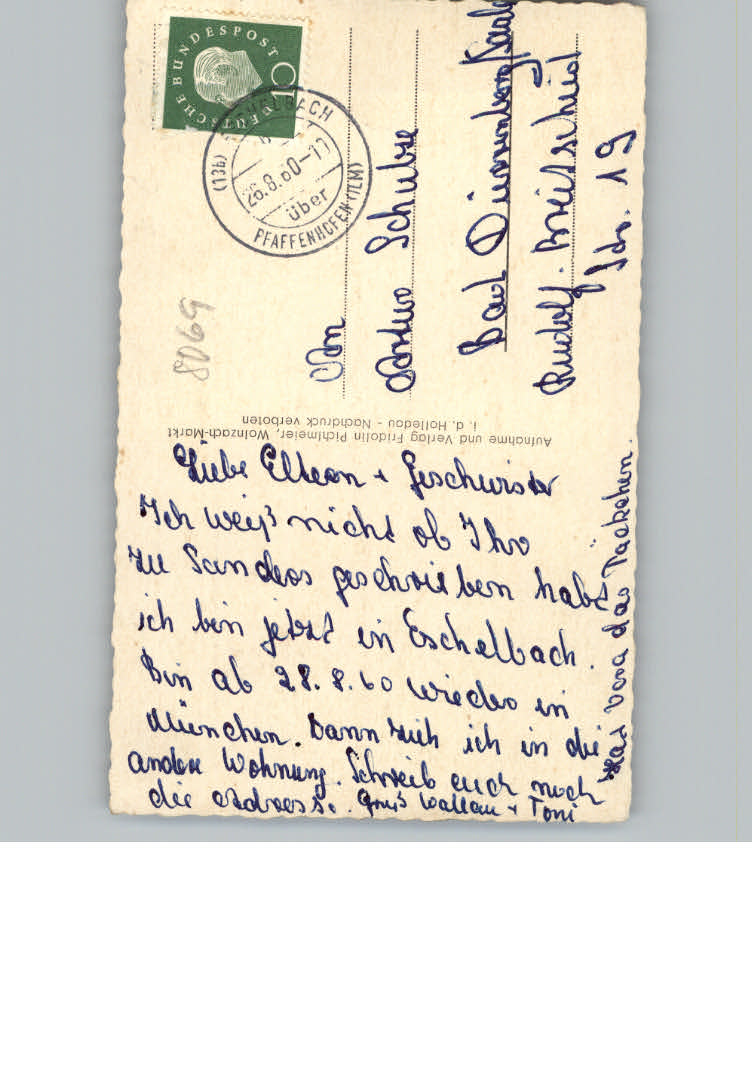 DEUTSCHE BUNDESPOST
10
(13b) ESCHELBACH
26.8.60-17
über
PFAFFENHOFEN (ILM)
8069
An
Schulze
Bad Dürrenberg Saale
Rudolf-Breitscheid
Str. 19
Aufnahme und Verlag Fridolin Pichlmeier, Wolnzach-Markt
i. d. Holledau - Nachdruck verboten
Liebe Eltern + Geschwister
Ich weiß nicht ob Ihr
zu Sanders geschrieben habt
ich bin jetzt in Eschelbach.
Bin ab 28.8.60 wieder in
München. Dann zieh ich in die
andere Wohnung. Schreib euch noch
die Adresse. Gruß + Toni
Hat das Päckchen.